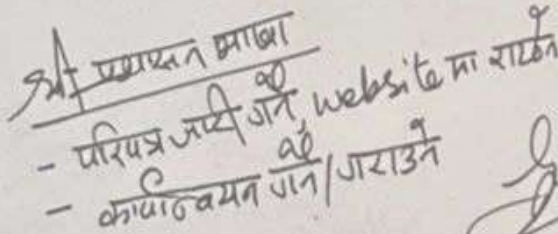 श्री प्रशासन शाखा
- परिपत्र जारी गर्ने, website मा राख्ने
- कार्यान्वयन गर्ने/गराउने